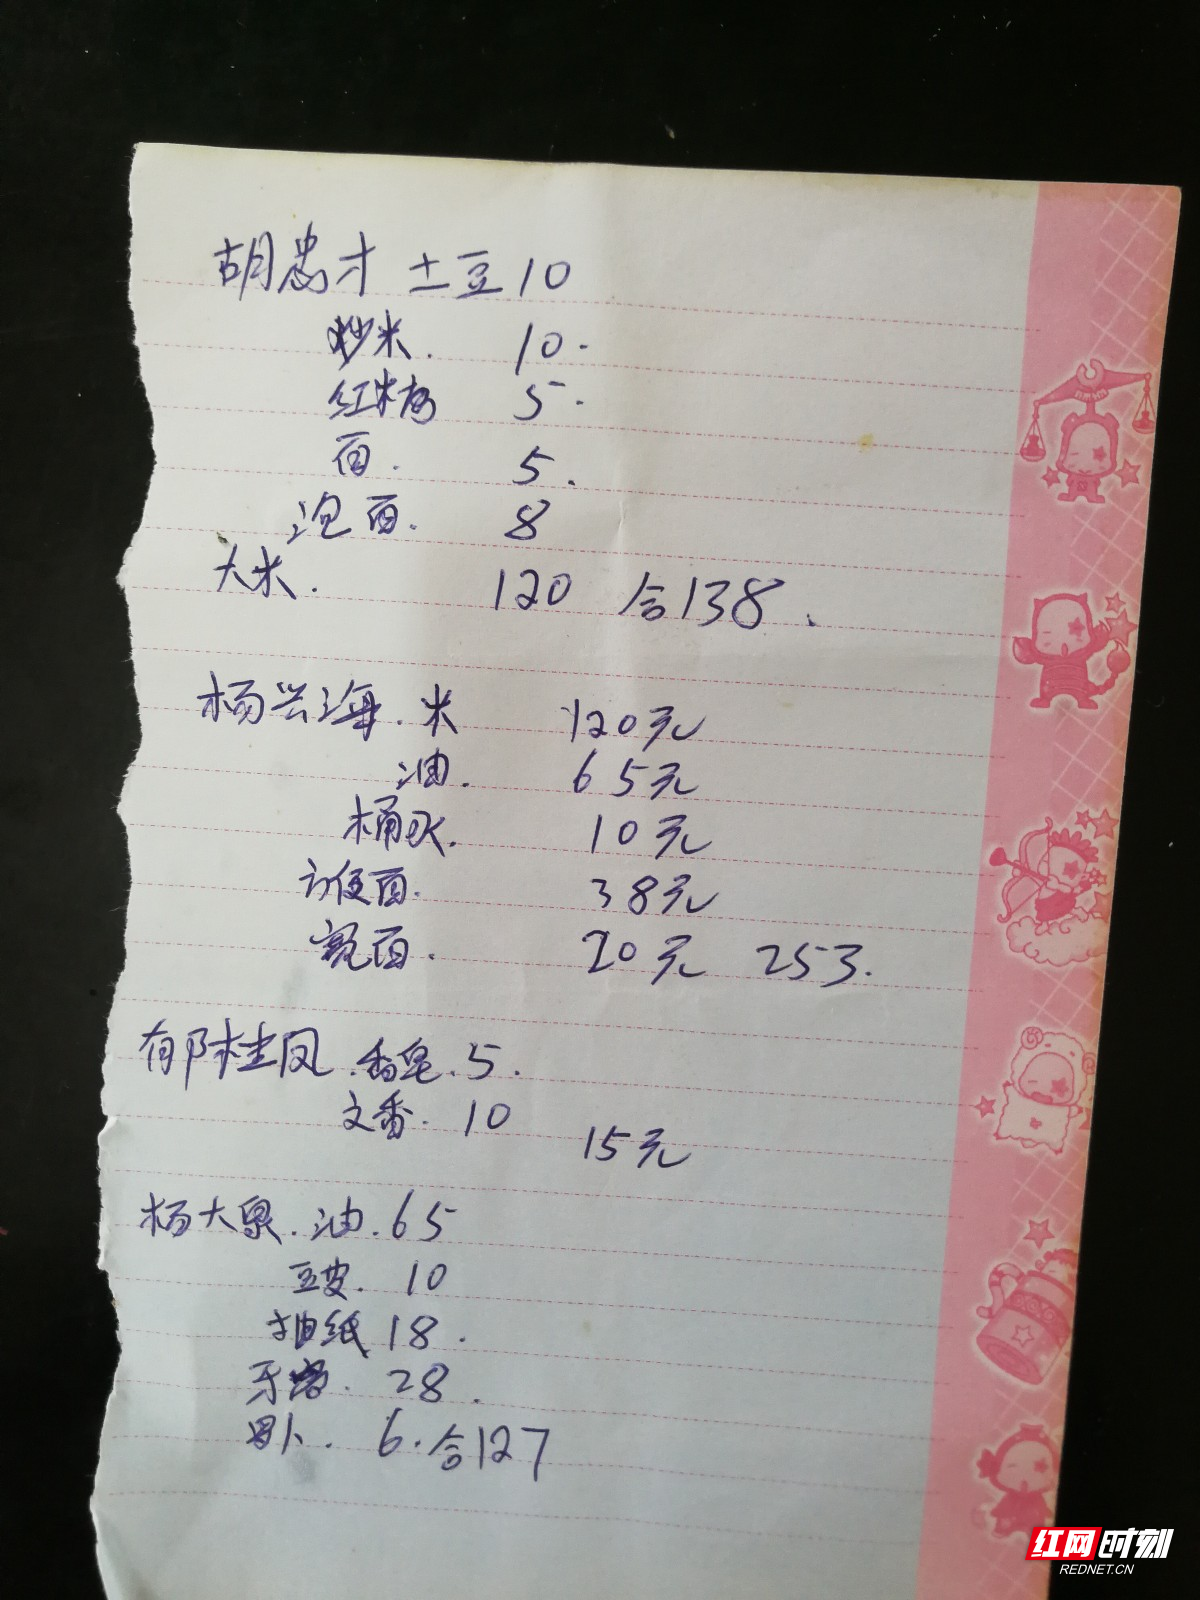 胡忠才 土豆 10
炒米. 10.
红米 5.
面. 5.
泡面. 8
大米. 120 合138.
杨兴海. 米 120元
油. 65元
桶水. 10元
方便面. 38元
面. 20元 253.
郁桂凤. 香皂. 5.
文香. 10
15元
杨大泉. 油. 65
豆皮. 10
抽纸 18.
牙膏. 28.
卜. 6. 合127
红网时刻
REDNET.CN